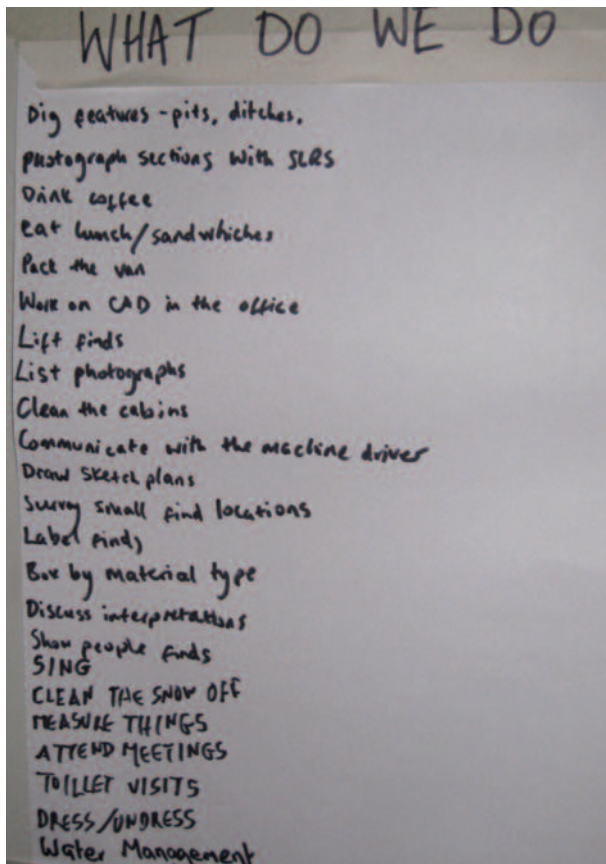 WHAT DO WE DO
Dig features - pits, ditches,
photograph sections with SLRS
Drink coffee
Eat lunch/sandwhiches
Pack the van
Work on CAD in the office
Lift finds
List photographs
Clean the cabins
Communicate with the machine driver
Draw sketch plans
Survey small find locations
Label finds
Box by material type
Discuss interpretations
Show people finds
SING
CLEAN THE SNOW OFF
MEASURE THINGS
ATTEND MEETINGS
TOILLET VISITS
DRESS/UNDRESS
Water Management